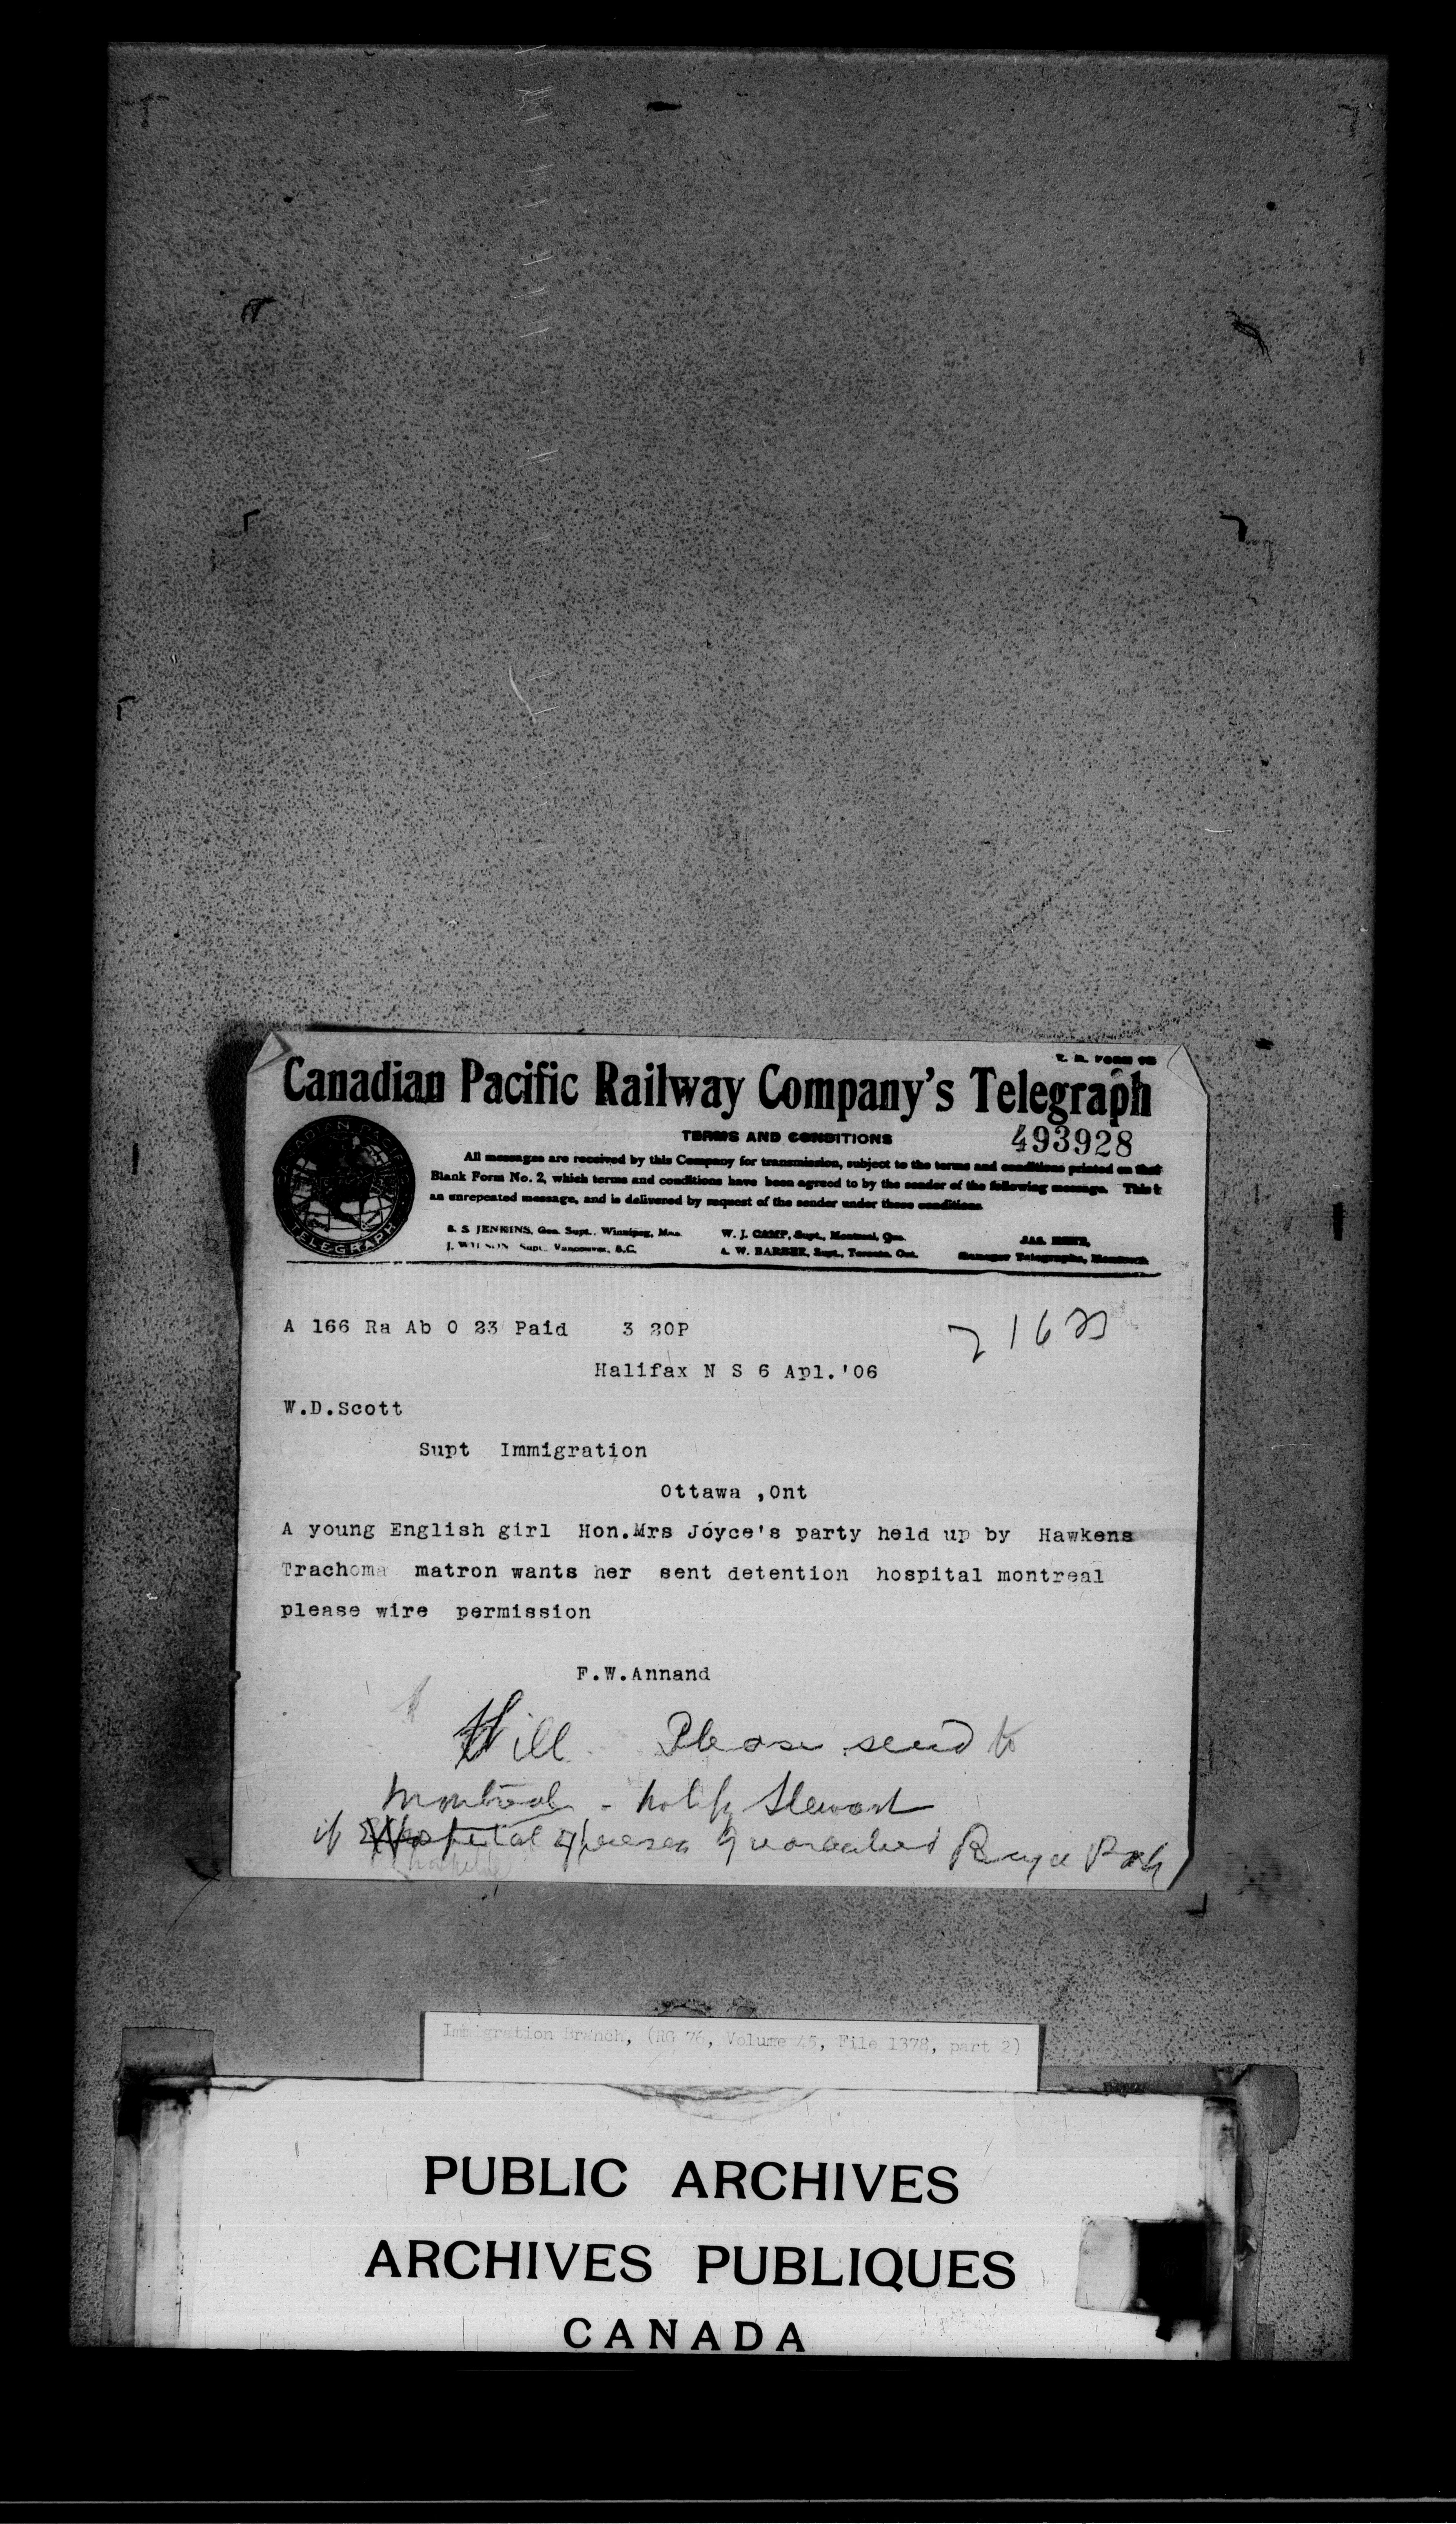 Canadian Pacific Railway Company's Telegraph
TERMS AND CONDITIONS
493928
All messages are received by this Company for transmission, subject to the terms and conditions printed on their
Blank Form No. 2, which terms and conditions have been agreed to by the sender of the following message. This is
an unrepeated message, and is delivered by request of the sender under these conditions.
B. S. JENKINS, Gen. Supt., Winnipeg, Man. W. J. CAMP, Supt., Montreal, Que.
J. WILSON, Supt., Vancouver, B.C. A. W. BARBER, Supt., Toronto, Ont. Manager Telegraphs, Montreal
CANADIAN PACIFIC
TELEGRAPH
A 166 Ra Ab O 23 Paid 3 20P
Halifax N S 6 Apl.'06
W.D.Scott
Supt Immigration
Ottawa ,Ont
A young English girl Hon.Mrs Joyce's party held up by Hawkens
Trachoma matron wants her sent detention hospital montreal
please wire permission
F.W.Annand
Please send to
Montreal - notify Stewart
if hospital expenses guaranteed
Immigration Branch, (RG 76, Volume 45, File 1378, part 2)
PUBLIC ARCHIVES
ARCHIVES PUBLIQUES
CANADA